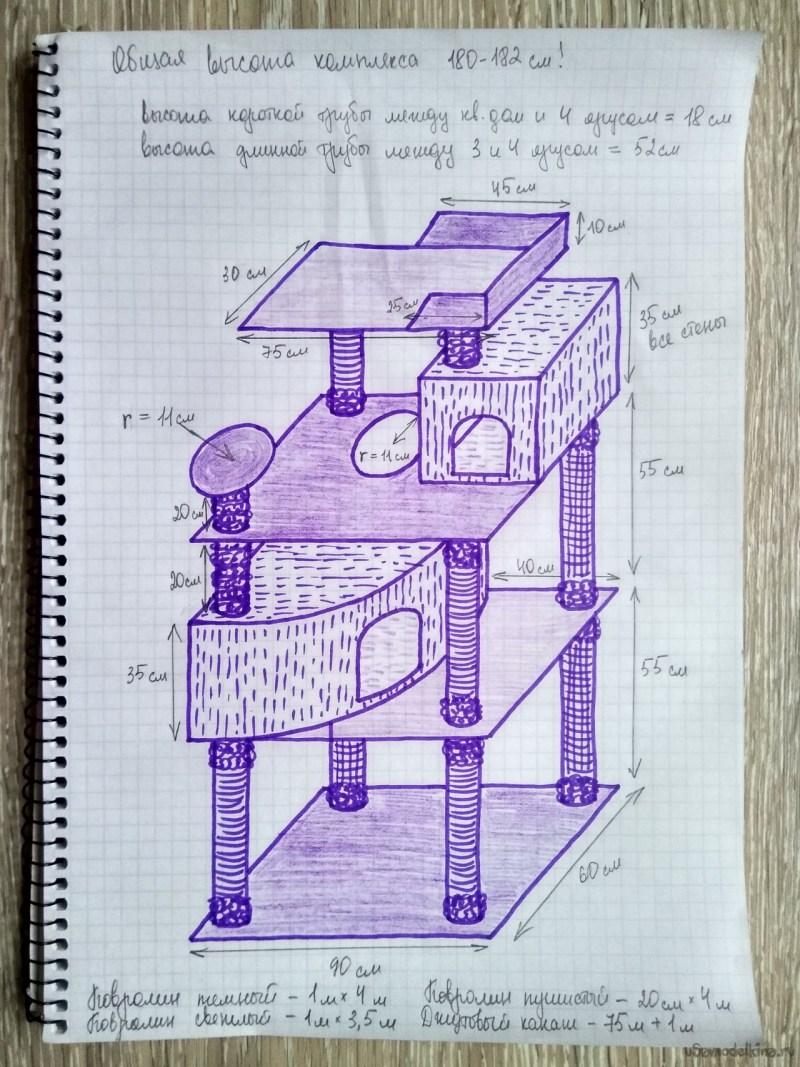 Общая высота комплекса 180-182 см!
высота короткой трубы между кв. дом и 4 ярусом = 18 см
высота длинной трубы между 3 и 4 ярусом = 52 см
45 см
10 см
30 см
25 см
35 см
все стены
75 см
r = 11 см
r = 11 см
55 см
20 см
20 см
40 см
35 см
55 см
60 см
90 см
Ковролин темный - 1 м × 4 м
Ковролин пушистый - 20 см × 4 м
Ковролин светлый - 1 м × 3,5 м
Джутовый канат - 75 м + 1 м
uSamodelkina.ru